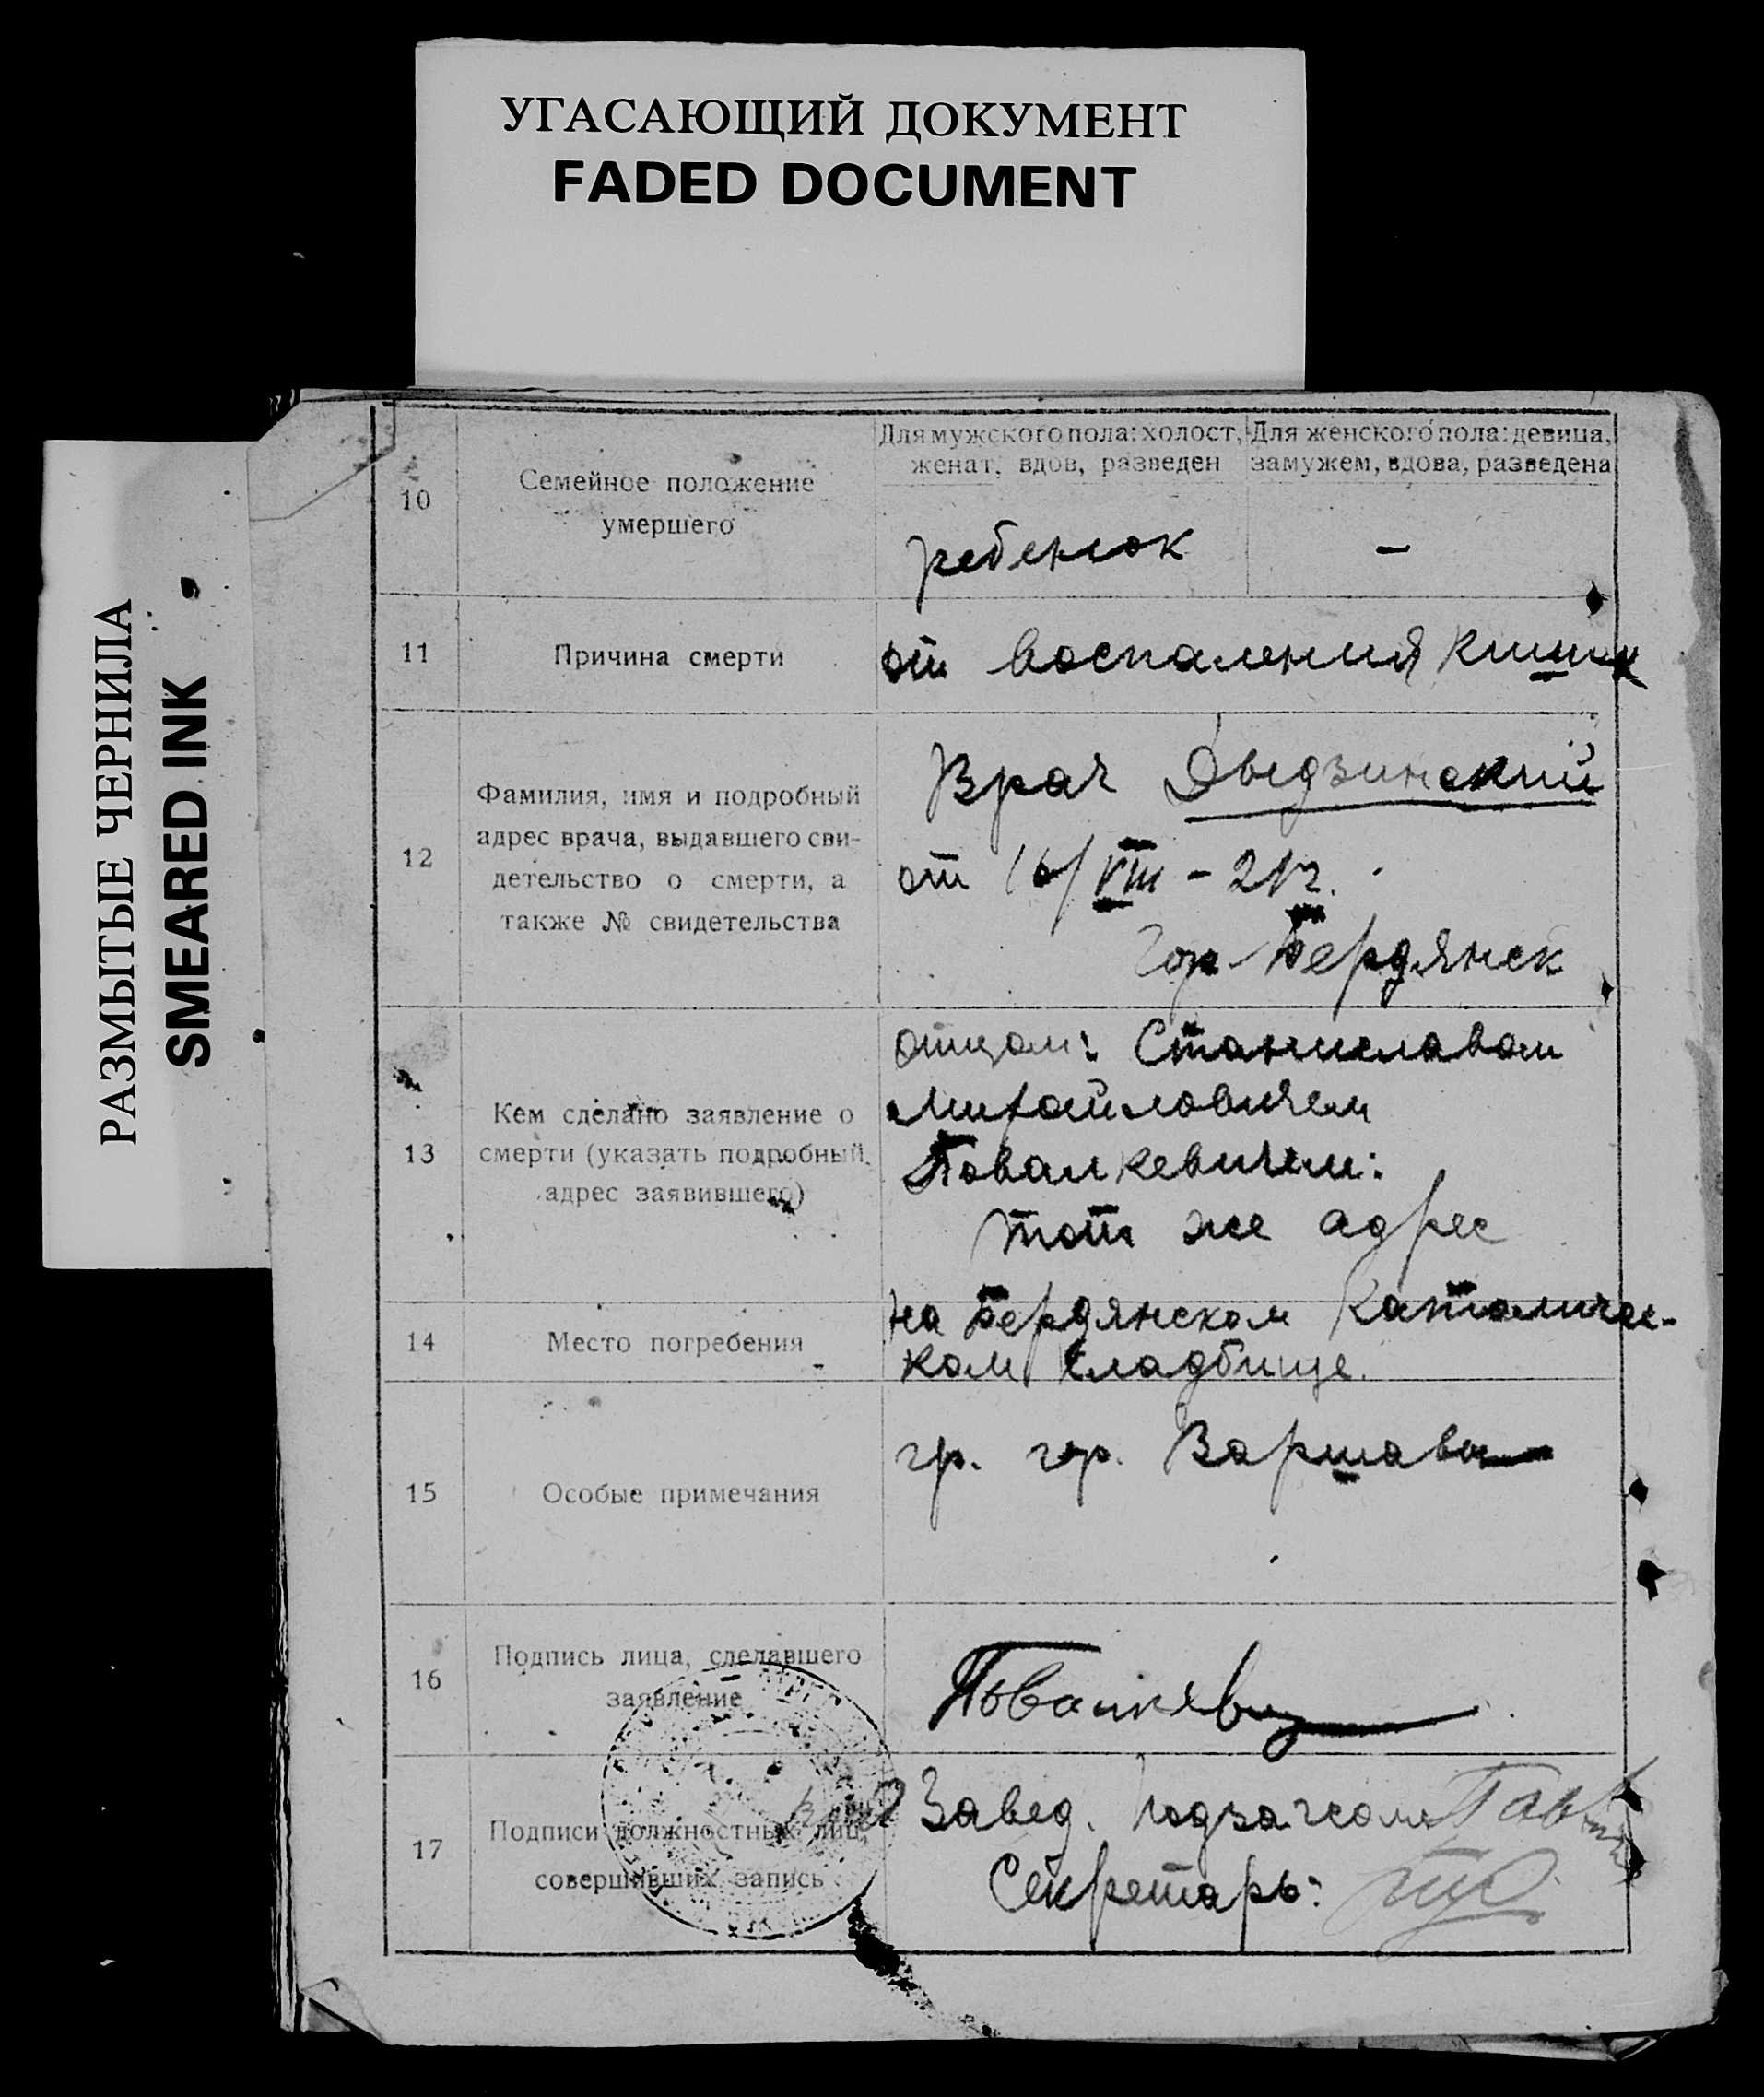 УГАСАЮЩИЙ ДОКУМЕНТ
FADED DOCUMENT
РАЗМЫТЫЕ ЧЕРНИЛА
SMEARED INK
10
Семейное положение
умершего
Для мужского пола: холост,
женат, вдов, разведен
Для женского пола: девица,
замужем, вдова, разведена
ребенок
-
11
Причина смерти
от воспаления кишок
12
Фамилия, имя и подробный
адрес врача, выдавшего сви-
детельство о смерти, а
также № свидетельства
Врач Дыдзинский
от 16/VIII - 21 г.
Гор. Бердянск
13
Кем сделано заявление о
смерти (указать подробный
адрес заявившего)
отцом: Станиславом
Михайловичем
Повалкевичем:
тот же адрес
14
Место погребения
на Бердянском Католичес-
ком кладбище.
15
Особые примечания
гр. гор. Варшавы
16
Подпись лица, сделавшего
заявление
17
Подписи должностных лиц,
совершивших запись
Завед. Подзагсом
Секретарь: